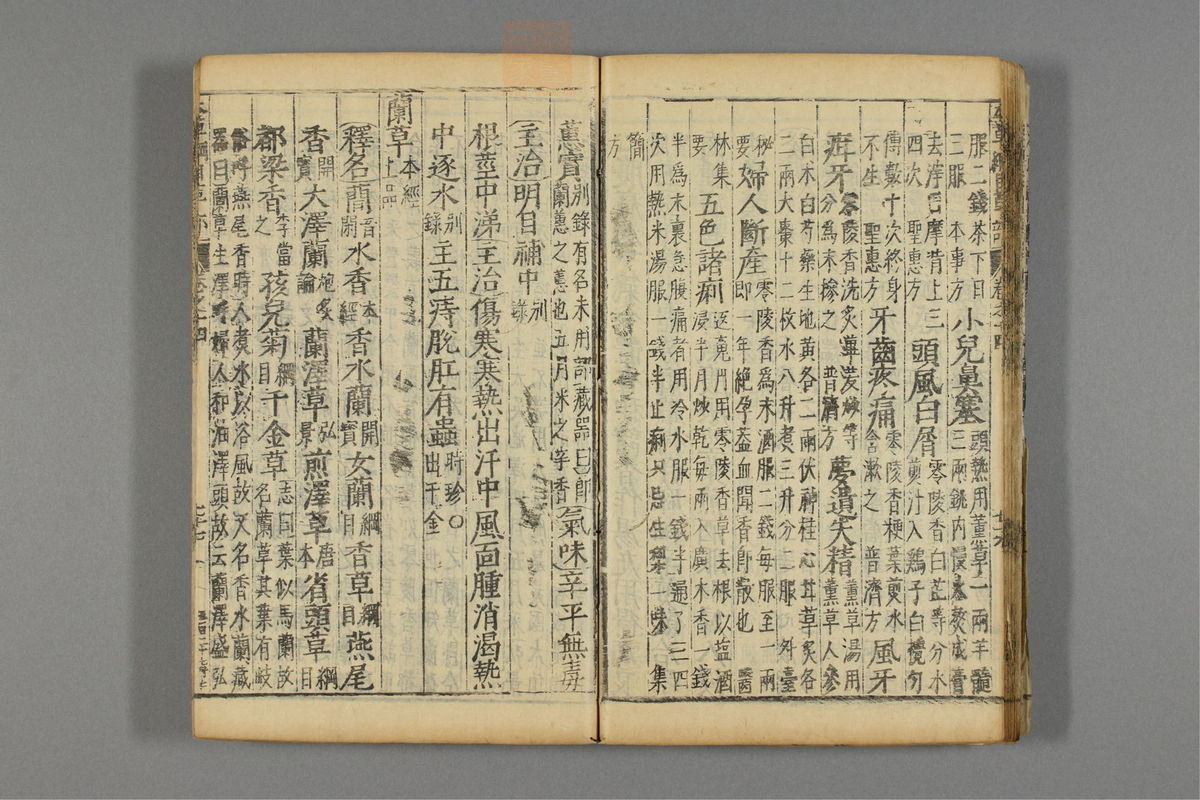 服二錢茶下日
三服 本事方 小兒鼻塞 頭熱用薰草一兩半髓
三兩銚內慢火熬成膏
去滓日摩背上三 零陵香白芷等分水
四次 聖惠方 頭風白屑 煎汁入鷄子白攪勻
傅數十次終身 零陵香梗葉煎水
不生 聖惠方 牙齒疼痛 含漱之 普濟方 風牙
疳牙 零陵香洗炙蓽茇炒等 薰草湯用
分為末摻之 普濟方 夢遺失精 薰草人參
白朮白芍藥生地黃各二兩茯神桂心甘草炙各
二兩大棗十二枚水八升煮三升分二服 外臺
秘 零陵香為末酒服二錢每服至一兩
要 婦人斷產 即一年絕孕蓋血聞香即散也 醫
林集 返魂丹用零陵香草去根以鹽酒
要 五色諸痢 浸半月炒乾每兩入廣木香一錢
半為末裏急腹痛者用冷水服一錢半通了三四
次用熱米湯服一錢半止痢只忌生梨一味 集
簡
方
蕙實 別錄有名未用 藏器曰即
蘭蕙之蕙也五月采之辛香 氣味 辛平無毒
主治 明目補中 別
錄
根莖中涕主治傷寒寒熱出汗中風面腫消渴熱
中逐水 別錄 主五痔脫肛有蟲 時珍○
出千金
蘭草 本經
上品
釋名 蕑 音
閑 水香 本
經 香水蘭 開
寶 女蘭 綱
目 香草 綱
目 燕尾
香 開
寶 大澤蘭 炮炙
論 蘭澤草 弘
景 煎澤草 唐
本 省頭草 綱
目
都梁香 李當
之 孩兒菊 綱
目 千金草 志曰葉似馬蘭故
名蘭草其葉有歧
俗呼燕尾香時人煮水以浴風故又名香水蘭藏
器曰蘭草生澤畔婦人和油澤頭故云蘭澤盛弘